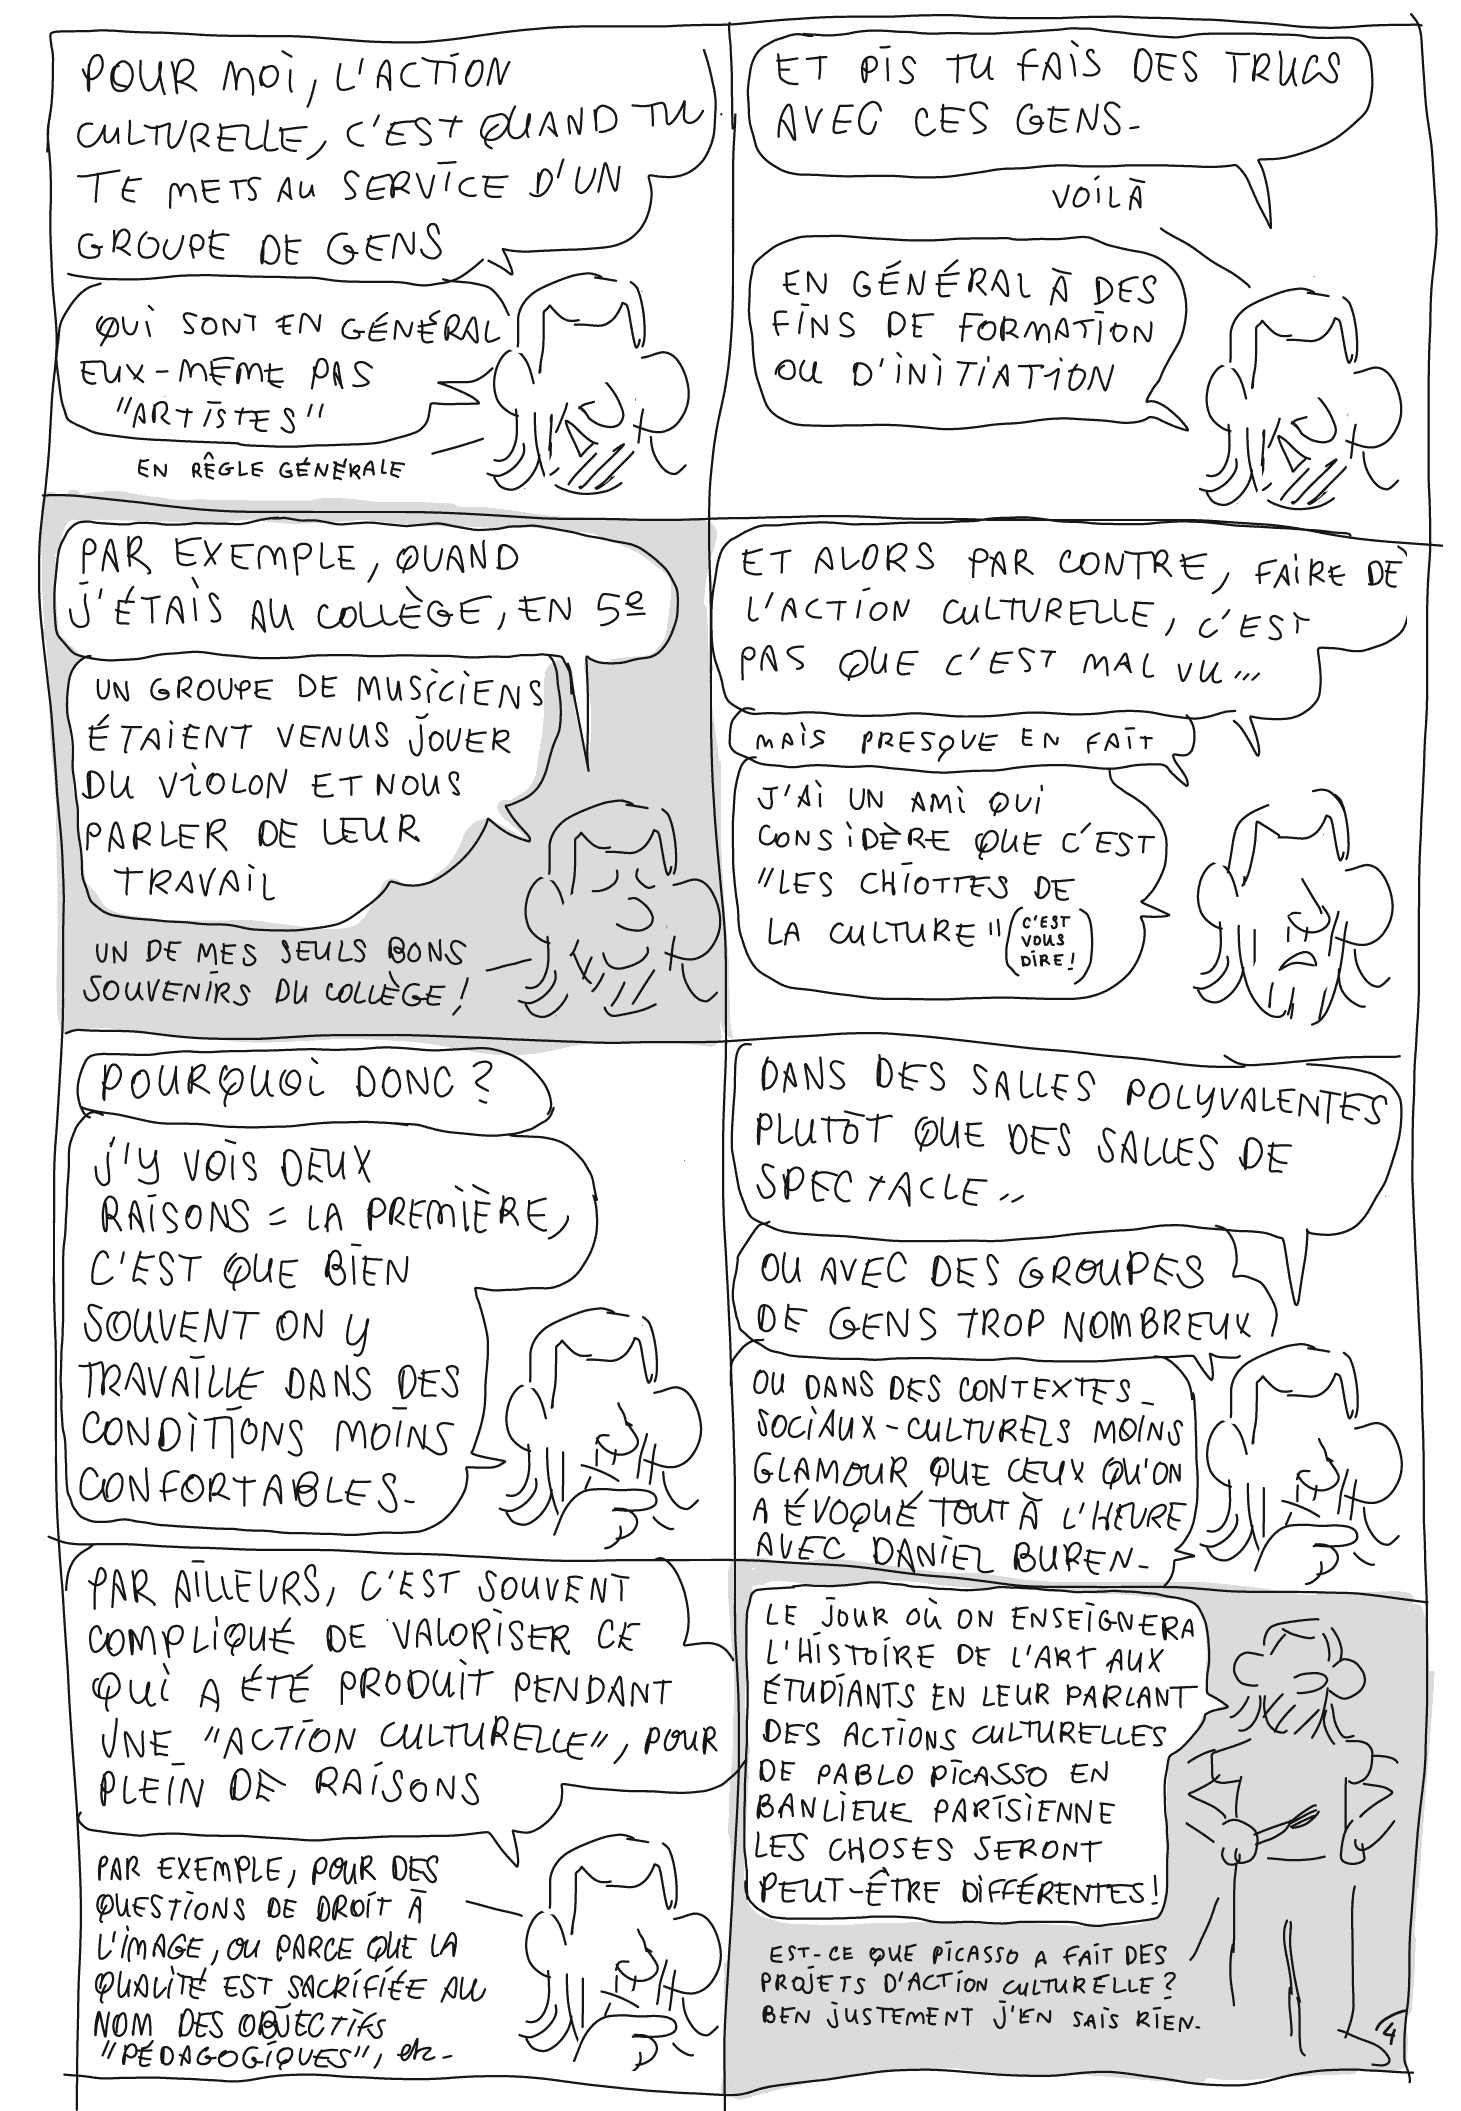 POUR MOI, L'ACTION
CULTURELLE, C'EST QUAND TU
TE METS AU SERVICE D'UN
GROUPE DE GENS
QUI SONT EN GÉNÉRAL
EUX-MÊME PAS
"ARTISTES"
EN RÊGLE GÉNÉRALE
ET PIS TU FAIS DES TRUCS
AVEC CES GENS.
VOILÀ
EN GÉNÉRAL À DES
FINS DE FORMATION
OU D'INITIATION
PAR EXEMPLE, QUAND
J'ÉTAIS AU COLLÈGE, EN 5e
UN GROUPE DE MUSICIENS
ÉTAIENT VENUS JOUER
DU VIOLON ET NOUS
PARLER DE LEUR
TRAVAIL
UN DE MES SEULS BONS
SOUVENIRS DU COLLÈGE !
ET ALORS PAR CONTRE, FAIRE DE
L'ACTION CULTURELLE, C'EST
PAS QUE C'EST MAL VU...
MAIS PRESQUE EN FAIT
J'AI UN AMI QUI
CONSIDÈRE QUE C'EST
"LES CHIOTTES DE
LA CULTURE" (C'EST
VOUS
DIRE!)
POURQUOI DONC ?
J'Y VOIS DEUX
RAISONS = LA PREMIÈRE,
C'EST QUE BIEN
SOUVENT ON Y
TRAVAILLE DANS DES
CONDITIONS MOINS
CONFORTABLES.
DANS DES SALLES POLYVALENTES
PLUTÔT QUE DES SALLES DE
SPECTACLE..
OU AVEC DES GROUPES
DE GENS TROP NOMBREUX
OU DANS DES CONTEXTES
SOCIAUX-CULTURELS MOINS
GLAMOUR QUE CEUX QU'ON
A ÉVOQUÉ TOUT À L'HEURE
AVEC DANIEL BUREN.
PAR AILLEURS, C'EST SOUVENT
COMPLIQUÉ DE VALORISER CE
QUI A ÉTÉ PRODUIT PENDANT
UNE "ACTION CULTURELLE", POUR
PLEIN DE RAISONS
PAR EXEMPLE, POUR DES
QUESTIONS DE DROIT À
L'IMAGE, OU PARCE QUE LA
QUALITÉ EST SACRIFIÉE AU
NOM DES OBJECTIFS
"PÉDAGOGIQUES", etc.
LE JOUR OÙ ON ENSEIGNERA
L'HISTOIRE DE L'ART AUX
ÉTUDIANTS EN LEUR PARLANT
DES ACTIONS CULTURELLES
DE PABLO PICASSO EN
BANLIEUE PARISIENNE
LES CHOSES SERONT
PEUT-ÊTRE DIFFÉRENTES!
EST-CE QUE PICASSO A FAIT DES
PROJETS D'ACTION CULTURELLE ?
BEN JUSTEMENT J'EN SAIS RIEN.
4